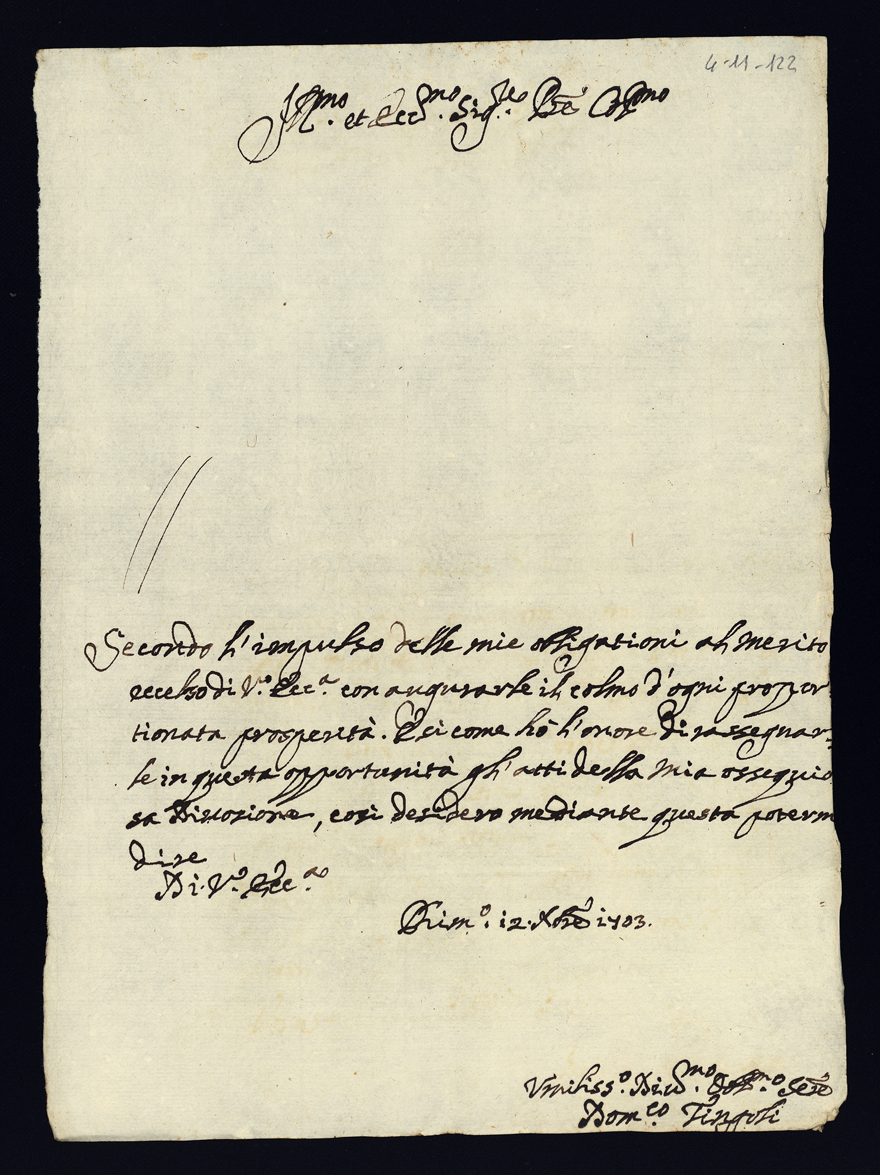 4-11-122
Ill.mo et Ecc.mo Sig.re Prē Col.mo
Secondo l'impulso delle mie obligationi al merito
eccelso di V.ª Ecc.ª con augurarle il colmo d'ogni propor-
tionata prosperità. E si come hò l'onore di rassegnar-
le in questa opportunità gl'atti della mia ossequio
sa Divozione, così desidero mediante questa poterm
dire
Di V.ª Ecc.ª
Rim.º 12 Xbrē 1703.
Umiliss.º Div.mo Obl.mo Serē
Dom.co Tingoli